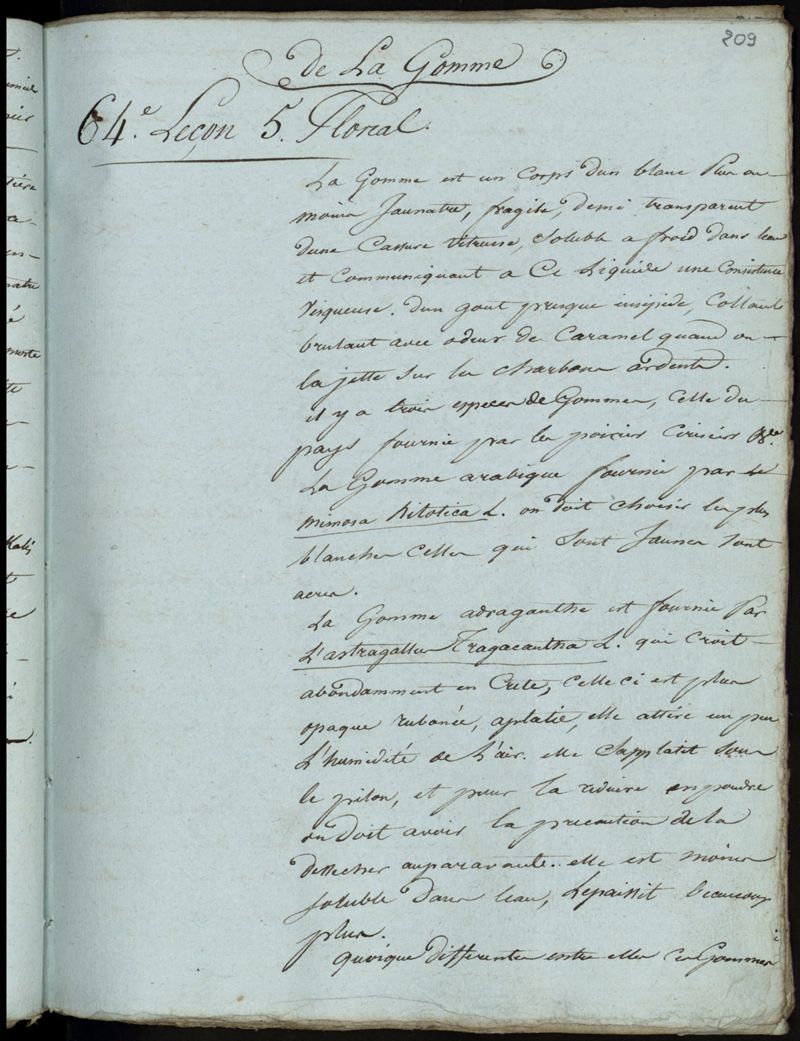 209
De La Gomme
64.e Leçon 5. Floreal.
La Gomme est un Corps dun blanc Plus ou
moins Jaunatre, fragile, demi transparent
dune Cassure Vitreuse, Soluble a froid dans leau
et Communiquant a Ce Liquide une Consistance
Visqueuse. Dun gout presque insipide, Collante
brulant avec odeur de Caramel quand on
la jette Sur les charbons ardents.
il y a trois especes de Gommes, Celle du
pays fournie par les poiriers Cerisiers &c.
La Gomme arabique fournie par le
Mimosa Nilotica L. on doit choisir les plus
blanches celles qui Sont Jaunes Sont
acres.
La Gomme adraganthe est fournie Par
L'astragallus Tragacantha L. qui Croit
abondamment en Crete, Celle ci est plus
opaque rubanée, aplatie, elle attire un peu
L'humidité de L'air. elle Sapplatit Sous
le pilon, et pour la réduire en poudre
on Doit avoir la precaution de la
dessecher auparavante. elle est moins
Soluble Dans leau, Lepaissit beaucoup
plus.
quoique Differentes entre elles ces Gommes